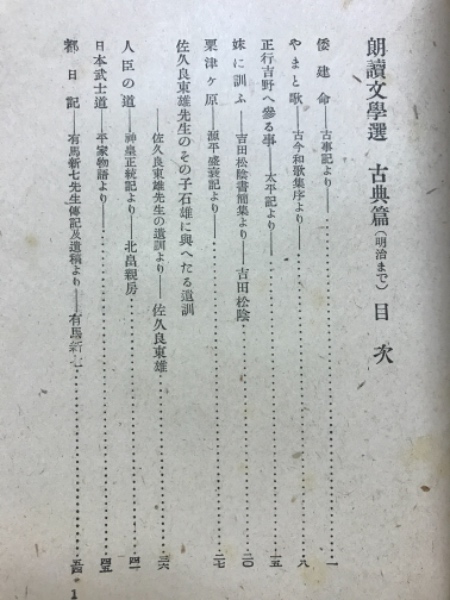 朗讀文學選 古典篇(明治まで) 目次
倭建命――古事記より――…………一
やまと歌――古今和歌集序より――…………八
正行吉野へ參る事――太平記より――…………一五
妹に訓ふ――吉田松陰書簡集より――吉田松陰…………二〇
粟津ヶ原――源平盛衰記より――…………二七
佐久良東雄先生のその子石雄に與へたる遺訓
――佐久良東雄先生の遺訓より――佐久良東雄…………三六
人臣の道――神皇正統記より――北畠親房…………四一
日本武士道――平家物語より――…………四五
都日記――有馬新七先生傳記及遺稿より――有馬新七…………五四
1